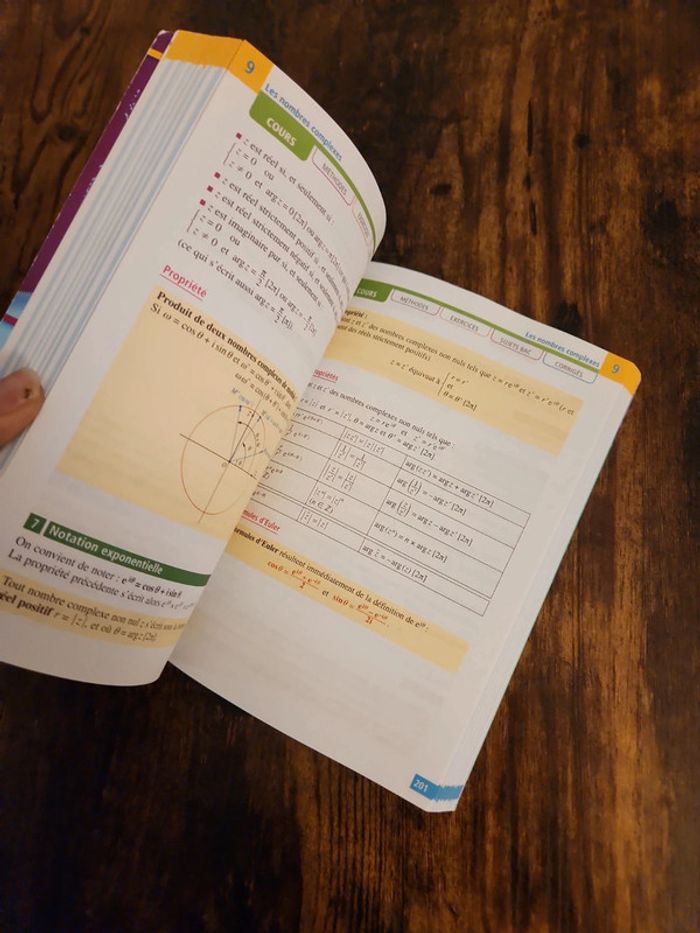 9
Les nombres complexes
COURS
MÉTHODES
■ z est réel si, et seulement si :
z = 0 ou
z ≠ 0 et arg z = 0 [2π] ou arg z = π [2π]
■ z est réel strictement positif si, et seulement
■ z est réel strictement négatif si, et seulement
■ z est imaginaire pur si, et seulement si
z = 0 ou
z ≠ 0 et arg z = π/2 [2π] ou arg z = -π/2 [2π]
(ce qui s'écrit aussi arg z = π/2 [π]).
Propriété
Produit de deux nombres complexes de
Si ω = cos θ + i sin θ et ω' = cos θ'
ωω' = cos(θ + θ')
O
7 Notation exponentielle
On convient de noter : e^iθ = cos θ + i sin θ
La propriété précédente s'écrit alors
Tout nombre complexe non nul z s'écrit sous la
réel positif r = |z|, et où θ = arg z [2π].
COURS
MÉTHODES
EXERCICES
SUJETS BAC
CORRIGÉS
Les nombres complexes
9
z et z' des nombres complexes non nuls tels que z = re^iθ et z' = r'e^iθ' (r et
sont des réels strictement positifs)
z = z' équivaut à r = r'
et
θ = θ' [2π]
z et z' des nombres complexes non nuls tels que :
z = re^iθ et z' = r'e^iθ'
r = |z| et r' = |z'|, θ = arg z et θ' = arg z' [2π]
|zz'| = |z| |z'| arg(zz') = arg z + arg z' [2π]
|1/z'| = 1/|z'| arg(1/z') = -arg z' [2π]
|z/z'| = |z|/|z'| arg(z/z') = arg z - arg z' [2π]
|z^n| = |z|^n arg(z^n) = n × arg z [2π]
(n ∈ Z)
|z̄| = |z| arg z̄ = -arg(z) [2π]
d'Euler
d'Euler résultent immédiatement de la définition de e^iθ :
cos θ = (e^iθ + e^-iθ)/2 et sin θ = (e^iθ - e^-iθ)/2i.
201